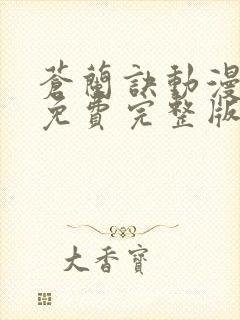 蒼蘭訣動漫
免費完整版
大香寶